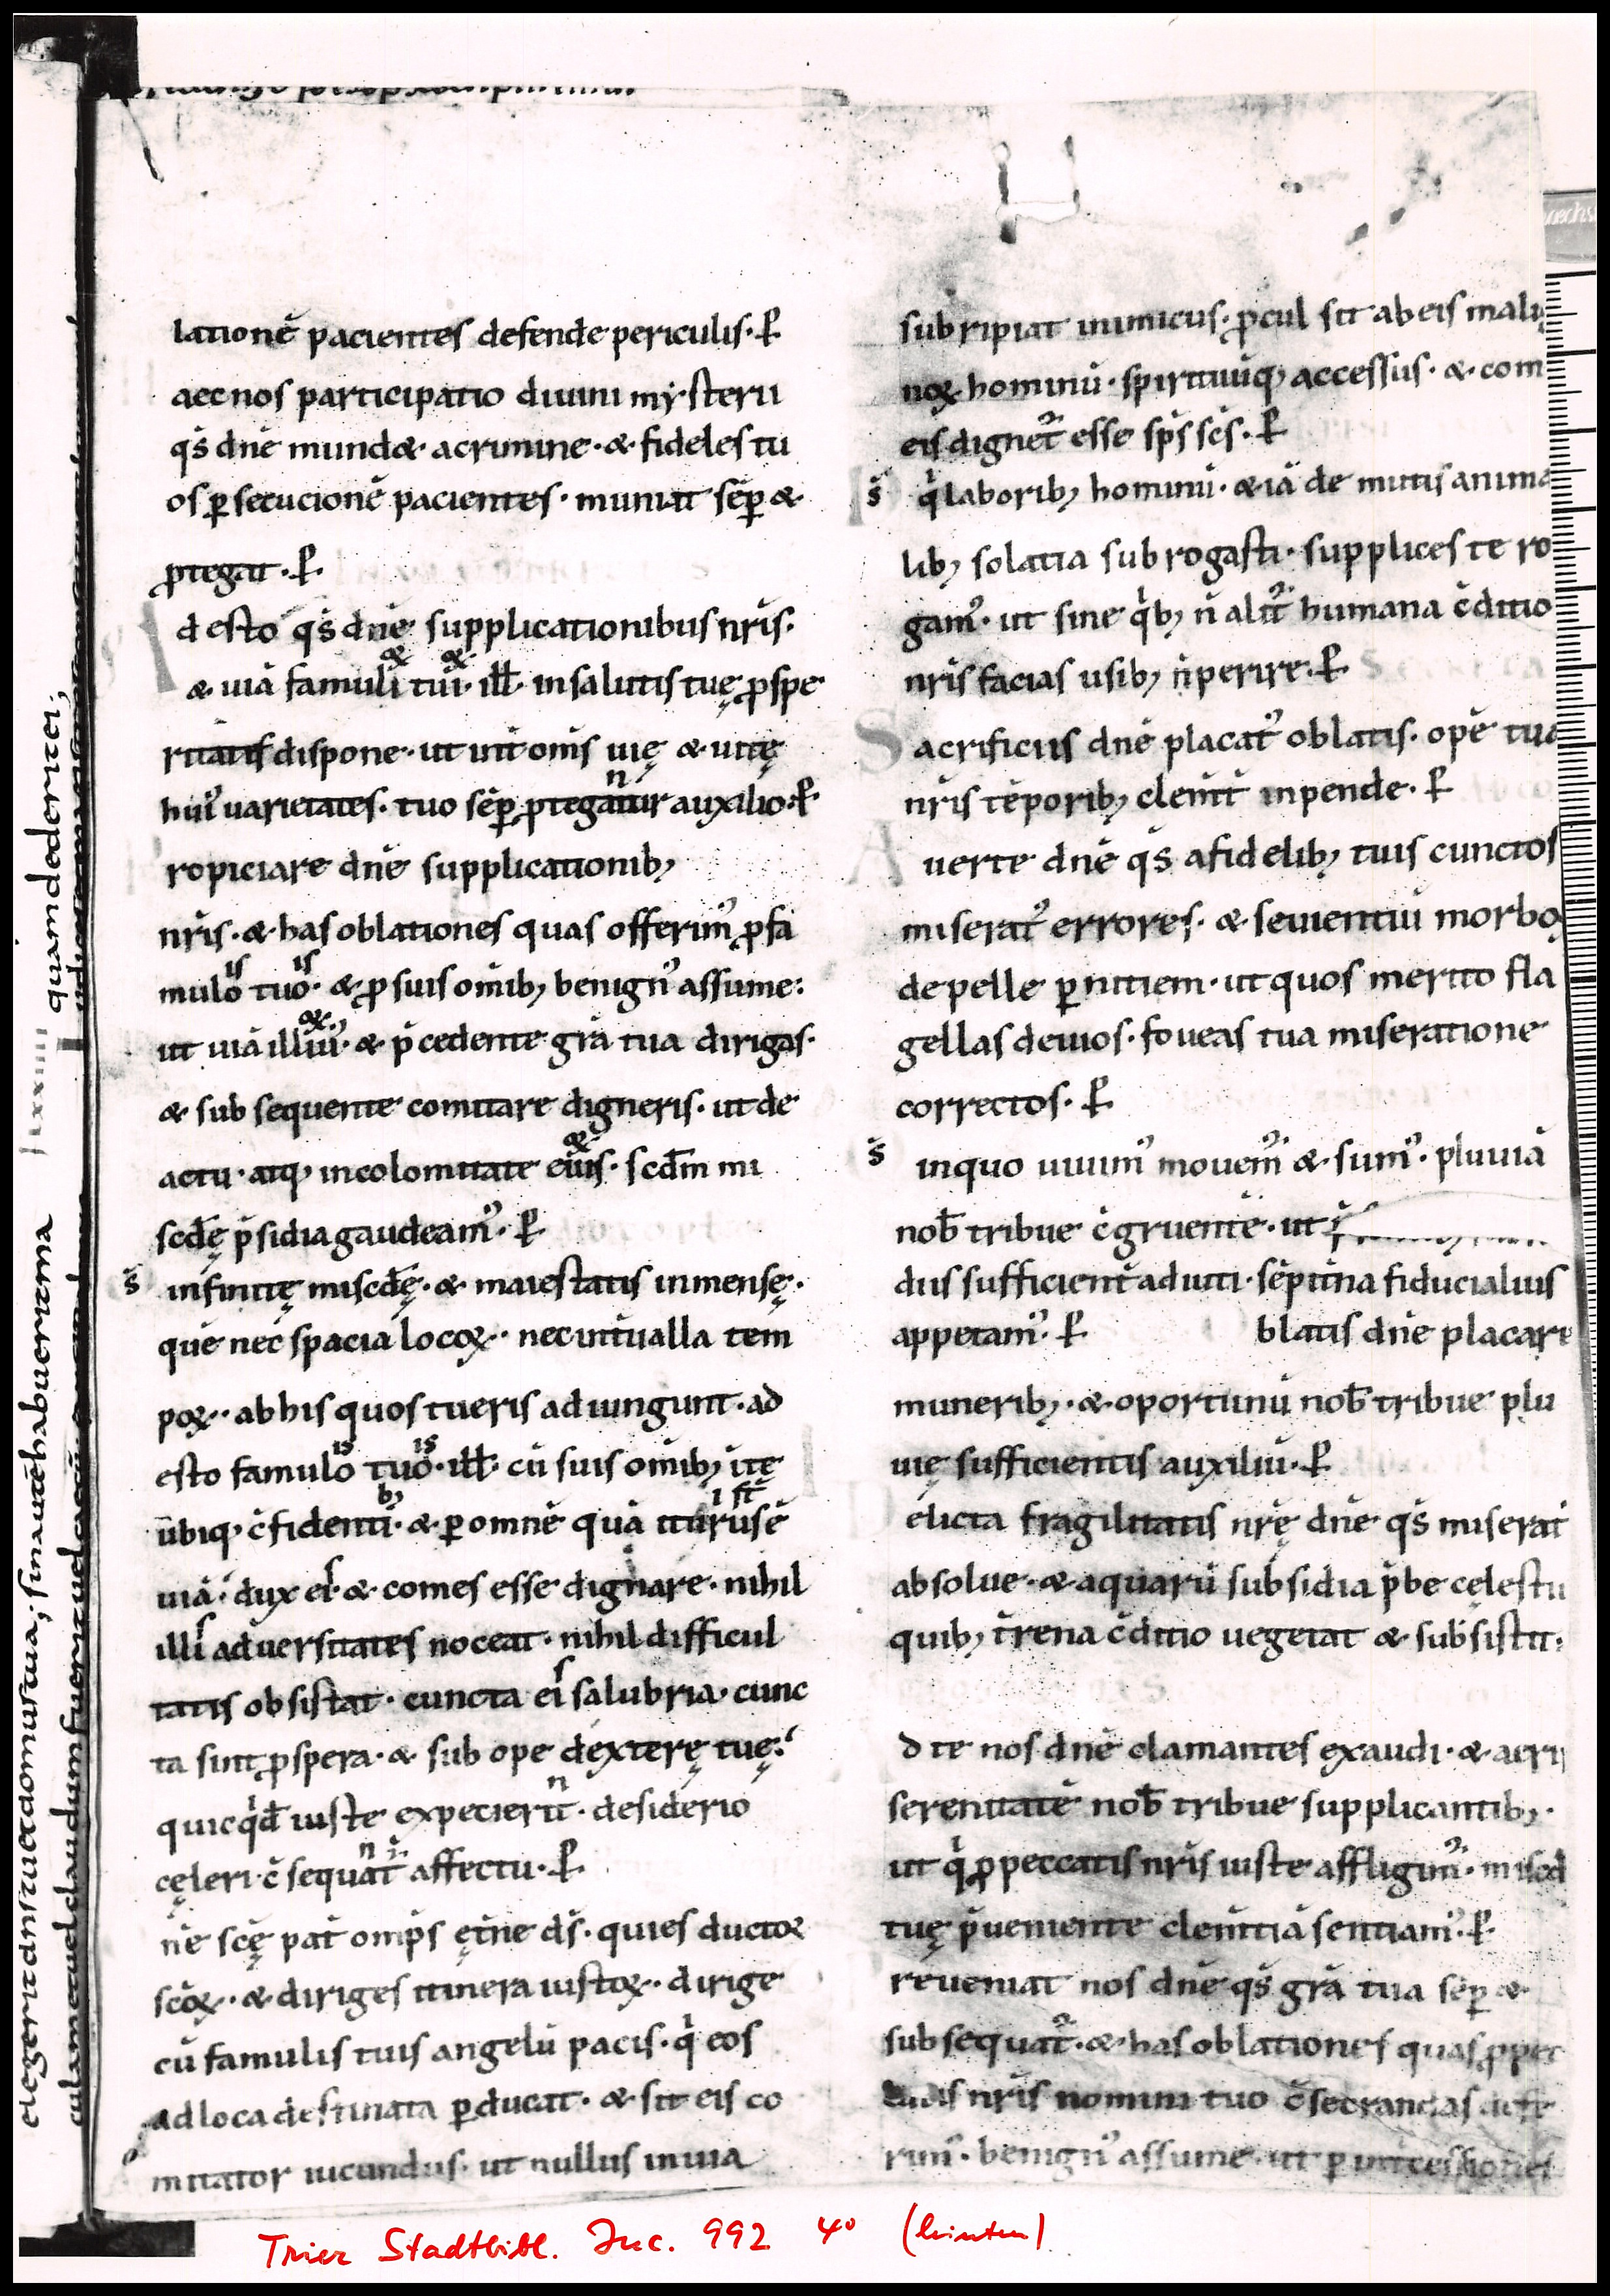 lationē pacientes defende periculis· ꝑ
aec nos participatio diuini my·sterii
qs̄ dn̄e mund&· a crimine· & fideles tu
os ꝑsecucionē pacientes· muniat sēꝑ &
ꝓtegat· ꝑ
desto qs̄ dn̄e supplicationibus nr̄is·
& uiā famuli tui· ill̄· in salutis tuę ꝓspe
ritatis dispone· ut int̄ om̄s uię & uitę
hui᾽ uarietates· tuo sēꝑ ꝓtegatur auxilio· ꝑ
ropiciare dn̄e supplicationib;
nr̄is· & has oblationes quas offerim᾽ ꝓ fa
mulo tuo· & ꝓ suis om̄ib; benign᾽ assume:
ut uiā illiu᾽· & p̄cedente gr̄a tua dirigas·
& subsequente comitare digneris· ut de
actu· atq; incolomitate eius· scd̄m mi
scd̄ę p̄sidia gaudeam᾽· ꝑ
s̄ infinitę miscd̄ę· & maiestatis inmensę·
quē nec spacia locoꝝ· nec int̄ualla tem
poꝝ· ab his quos tueris adiungunt· ad
esto famulo tuo· ill̄· cū suis om̄ib; itę
ubiq; c̄fidenti· & ꝑ omnē quā iturus ē
uiā· dux ei· & comes esse dignare· nihil
illi aduersitates noceat· nihil difficul
tatis obsistat· cuncta ei salubria· cunc
ta sint ꝓspera· & sub ope dexterę tuę·
quicqd̄ iuste expecierit· desiderio
cęleri c̄sequat̄ affectu· ꝑ
nē scę pat̄ omp̄s ęt̄ne ds̄· qui es ductoꝛ
scōꝝ· & diriges itinera iustoꝝ· dirige
cū famulis tuis angelū pacis· q̇ eos
ad loca destinata ꝑducat· & sit eis co
mitator iucundus· ut nullus in uia
subripiat inimicus· ꝓcul sit ab eis malig
noꝝ hominū· spirituūq; accessus· & com
eis dignet᾽ esse sp̄s sc̄s· ꝑ
s̄ q̇ laborib; hominū· &iā de mutis anima
lib; solatia subrogasti· supplices te ro
gam᾽· ut sine q̇b; n̄ alit᾽ humana c̄ditio
nr̄is facias usib; n̄ perire· ꝑ
Sacrificiis dn̄e placat᾽ oblatis· opē tuā
nr̄is tēporib; clem̄t̄ inpende· ꝑ
Auerte dn̄e qs̄ a fidelib; tuis cunctos
miserat᾽ errores· & seuientiū morbo
depelle ꝑnitiem· ut quos merito fla
gellas deuios· foueas tua miseratione
correctos· ꝑ
s̄ in quo uiuim᾽ mouem᾽ & sum᾽· pluuiā
nob̄ tribue c̄gruentē· ut
diis sufficient̄ adiuti· sēpit̄na fiducialius
appetam᾽· ꝑ blatis dn̄e placare
munerib;· & oportunū nob̄ tribue plu
uię sufficientis auxiliū· ꝑ
elicta fragilitatis nr̄ę dn̄e qs̄ miserat᾽
absolue· & aquarū subsidia p̄be cęlestiū
quib; t̄rena c̄ditio uegetat & subsistit:
d te nos dn̄e clamantes exaudi· & aeri
serenitatē nob̄ tribue supplicantib;·
ut q̇ ꝓ peccatis nr̄is iuste affligim᾽· miscd̄
tuę p̄ueniente clem̄tiā sentiam᾽· ꝑ
reueniat nos dn̄e qs̄ gr̄a tua sēꝑ &
subsequat᾽· & has oblationes quas ꝓ pec
nr̄is nomini tuo c̄secrandas defe
rim᾽· benign᾽ assume· ut ꝑ int̄cessiones
quam dederit ei;
elegerit dn̄s tuet domus tua; sin autē habuerit ma
Trier Stadtbibl. Inc. 992 4° (hinten)